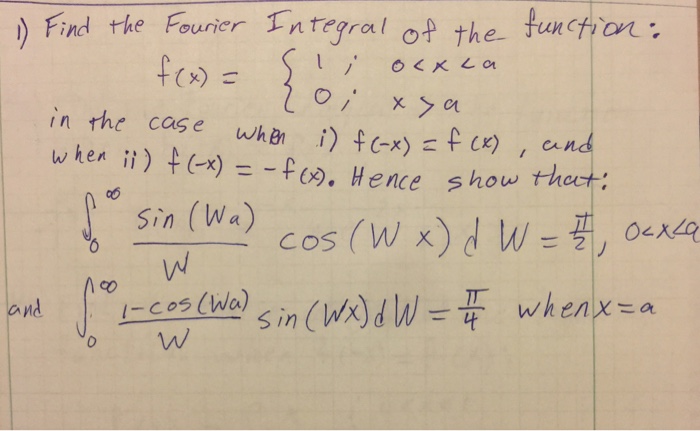 1) Find the Fourier Integral of the function:
f(x) = { 1 ; 0 < x < a
0 ; x > a
in the case when i) f(-x) = f(x), and
when ii) f(-x) = -f(x). Hence show that:
∫₀^∞ sin (Wa)/W cos (W x) d W = π/2, 0<x<a
and ∫₀^∞ 1-cos(Wa)/W sin(Wx)dW = π/4 when x=a